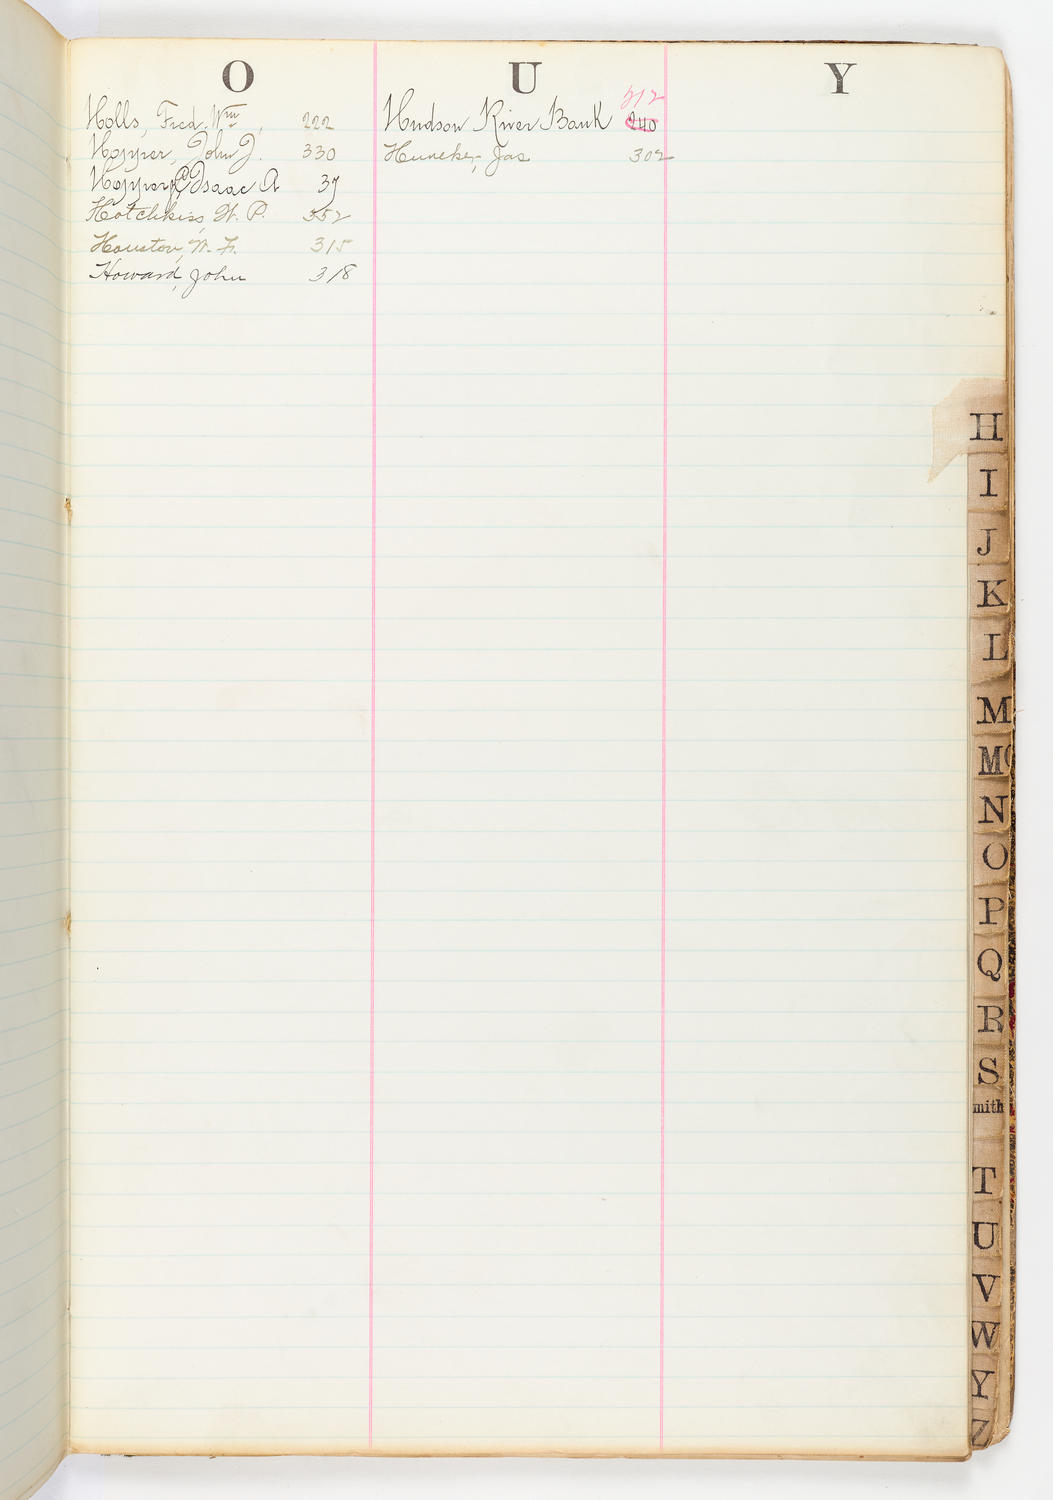 O
Holls, Fred. Wm, 222
Hopper, John J. 330
Hopper, Isaac A 37
Hotchkiss, W. P. 352
Houston, W. F. 315
Howard, John 318
U
212
Hudson River Bank 240
Huneker, Jas 302
Y
H
I
J
K
L
M
Mc
N
O
P
Q
R
S
mith
T
U
V
W
Y
Z